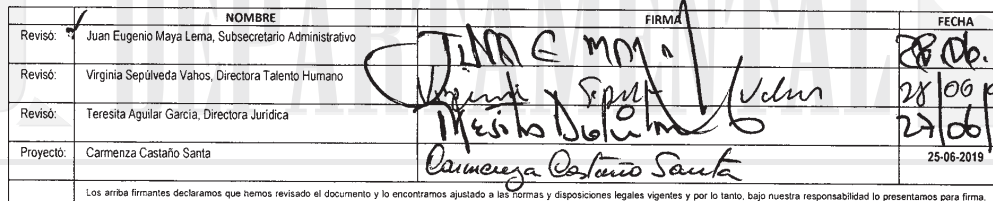 DEPARTAMENTAL
NOMBRE FIRMA FECHA
Revisó: Juan Eugenio Maya Lema, Subsecretario Administrativo JUAN E MAYA 28 06.
Revisó: Virginia Sepúlveda Vahos, Directora Talento Humano Virginia Sepul Vahos 28/06
Revisó: Teresita Aguilar Garcia, Directora Jurídica Teresita Aguilar 27/06
Proyectó: Carmenza Castaño Santa Carmenza Castaño Santa 25-06-2019
Los arriba firmantes declaramos que hemos revisado el documento y lo encontramos ajustado a las normas y disposiciones legales vigentes y por lo tanto, bajo nuestra responsabilidad lo presentamos para firma.